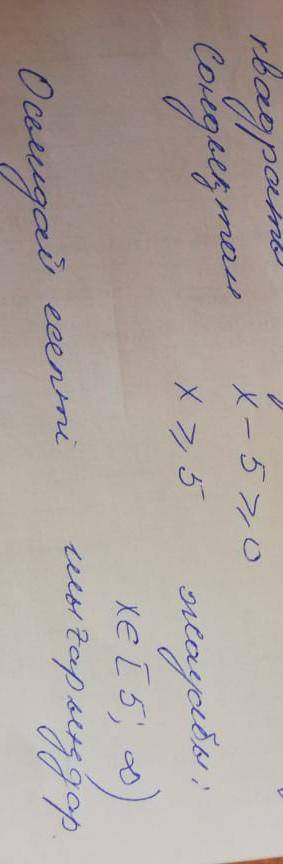 квадраты
x - 5 ⩾ 0
Сондықтан x ⩾ 5 жауабы:
x ∈ [5; ∞)
Осындай есепті шығарыңдар.